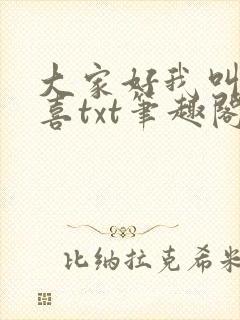 大家好我叫
喜txt笔趣阁
比纳拉克希米